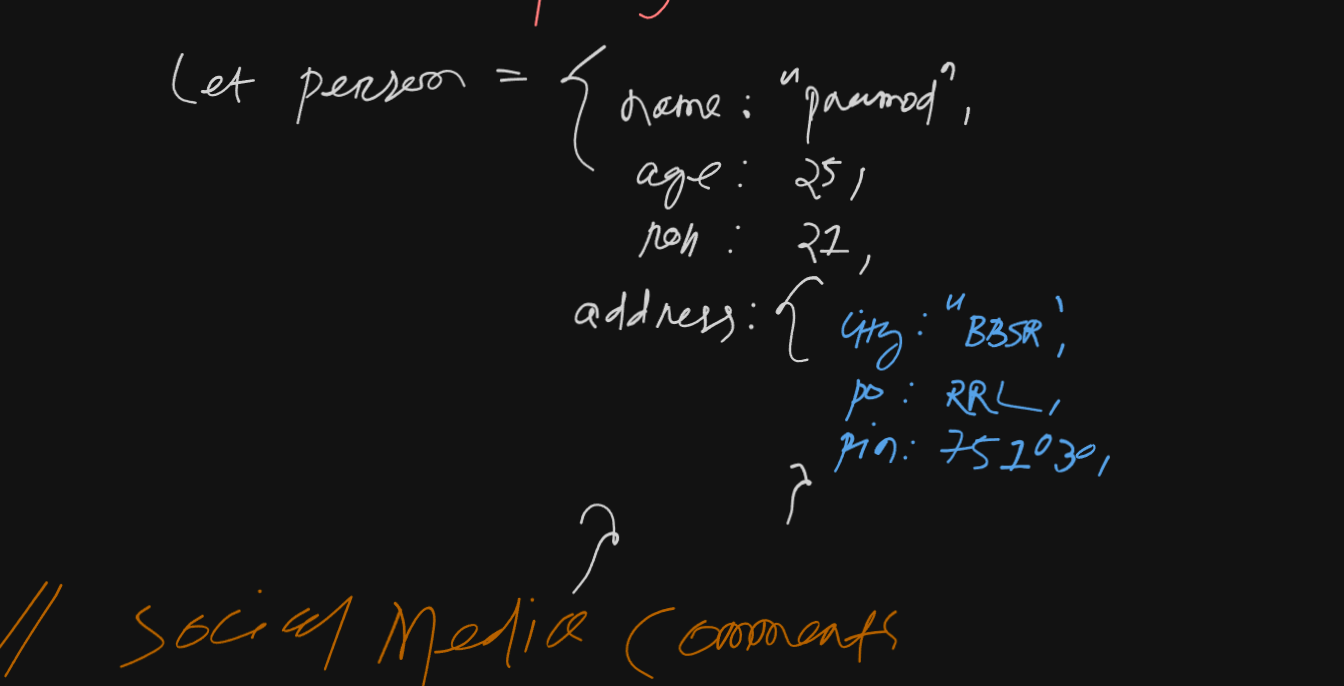 let person = { name: "pramod",
age: 25,
roll: 21,
address: { city: "BBSR",
po: RRL,
pin: 751030,
}
}
// Social Media Comments